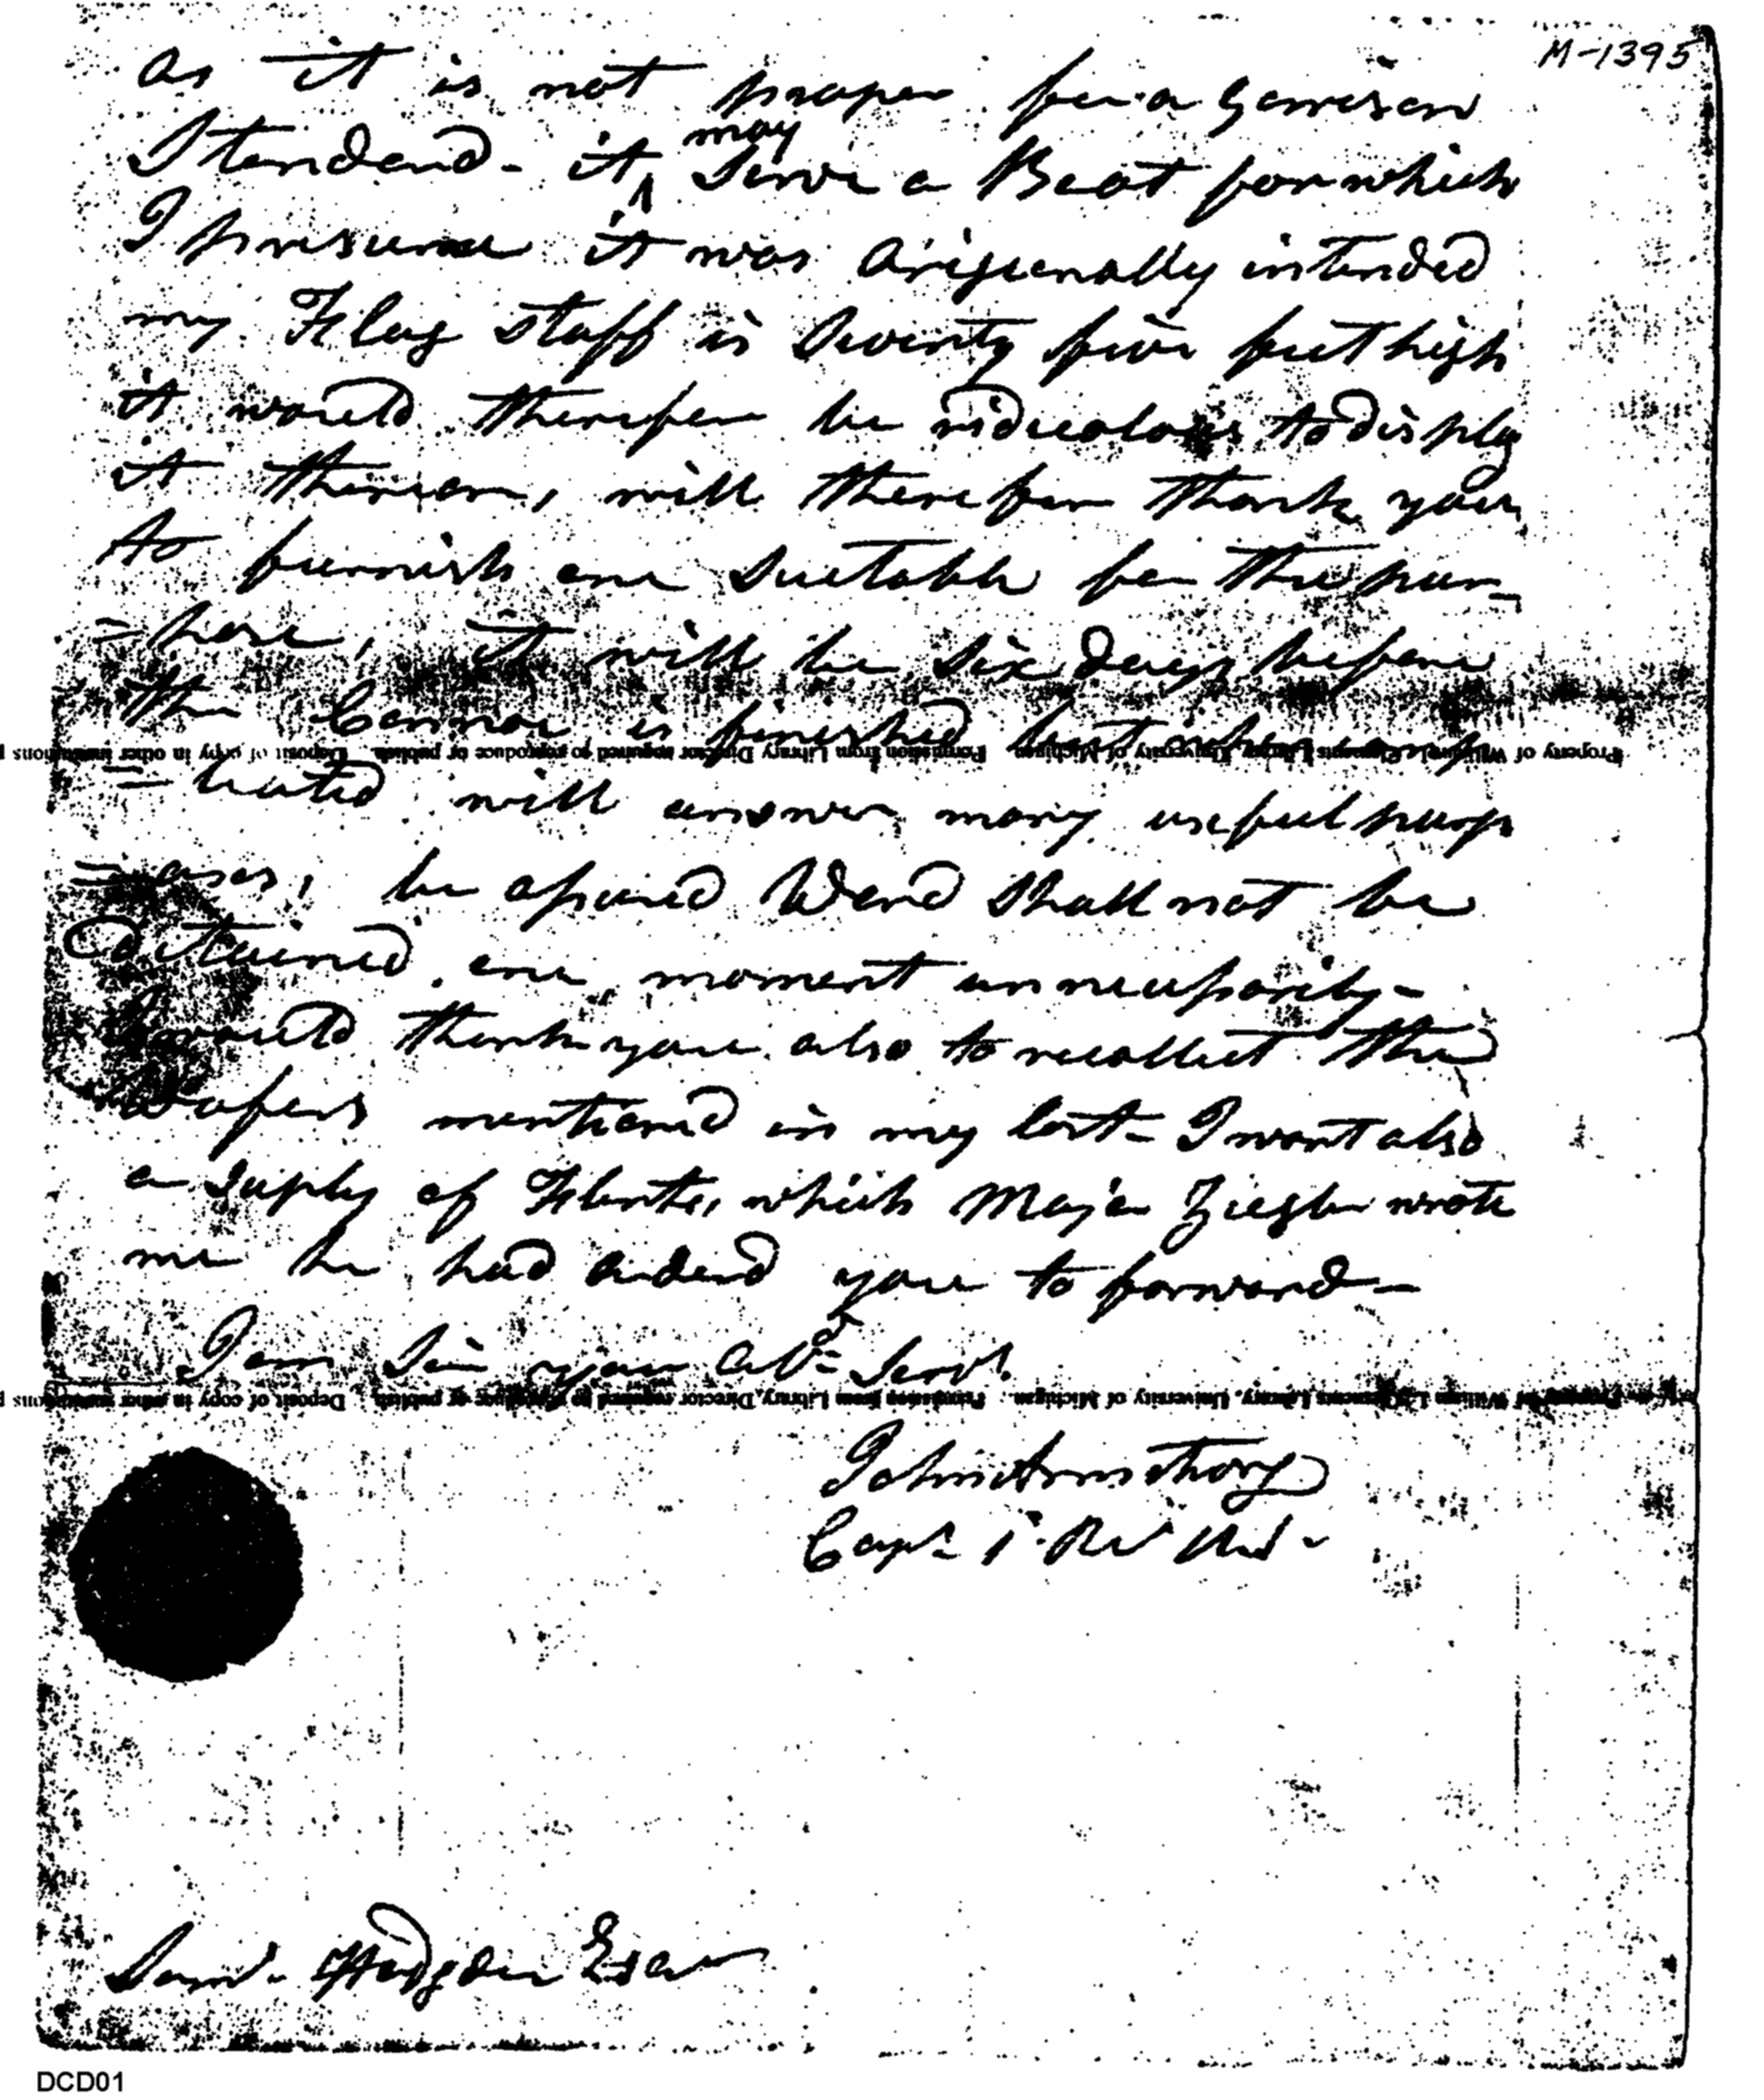 M-1395
as it is not proper for a Garrison
Standard - it ^may Serve a Boat for which
I presume it was Origenally intended
my Flag staff is Seventy five feet high
it would therefore be ridicolous to display
it thereon, will therefore thank you
to furnish one Suetable for the pur-
=pose, it will be Six Days before
the Connoe is finished but
=leated will answer many useful purp
=oses, be assured Ward Shall not be
detained one moment unnecessarily -
I would thank you also to recollect the
Wafers mentioned in my last - I want also
a Suply of Flints, which Major Ziegler wrote
me he had ordered you to forward -
I am Sir your Obd. Servt.
John Armstrong
Capt. 1. Rt
Saml. Hodgdon Esqr
Property of William L. Clements Library, University of Michigan. Permission from Library Director required to reproduce or publish. Deposit of copy in other institutions p
Property of William L. Clements Library, University of Michigan. Permission from Library Director required to reproduce or publish. Deposit of copy in other institutions p
DCD01